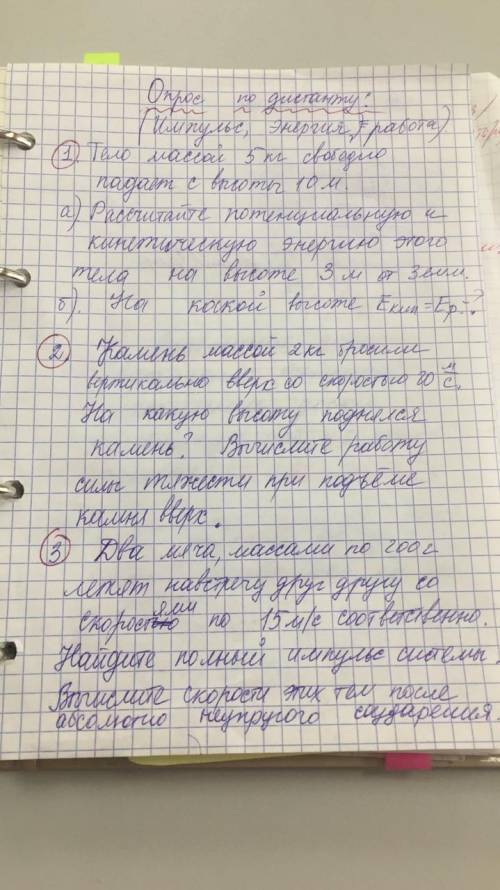 Опрос по дистанту:
(Импульс, энергия, работа)
① Тело массой 5 кг свободно
падает с высоты 10 м.
а) Рассчитайте потенциальную и
кинетическую энергию этого
тела на высоте 3 м от земли.
б). На какой высоте Eкин = Eр - ?
② Камень массой 2 кг бросили
вертикально вверх со скоростью 20 м/с.
На какую высоту поднялся
камень? Вычислите работу
силы тяжести при подъёме
камня вверх.
③ Два мяча, массами по 200 г
летят навстречу друг другу со
скоростями по 15 м/с соответственно.
Найдите полный импульс системы.
Вычислите скорости этих тел после
абсолютно неупругого соударения.